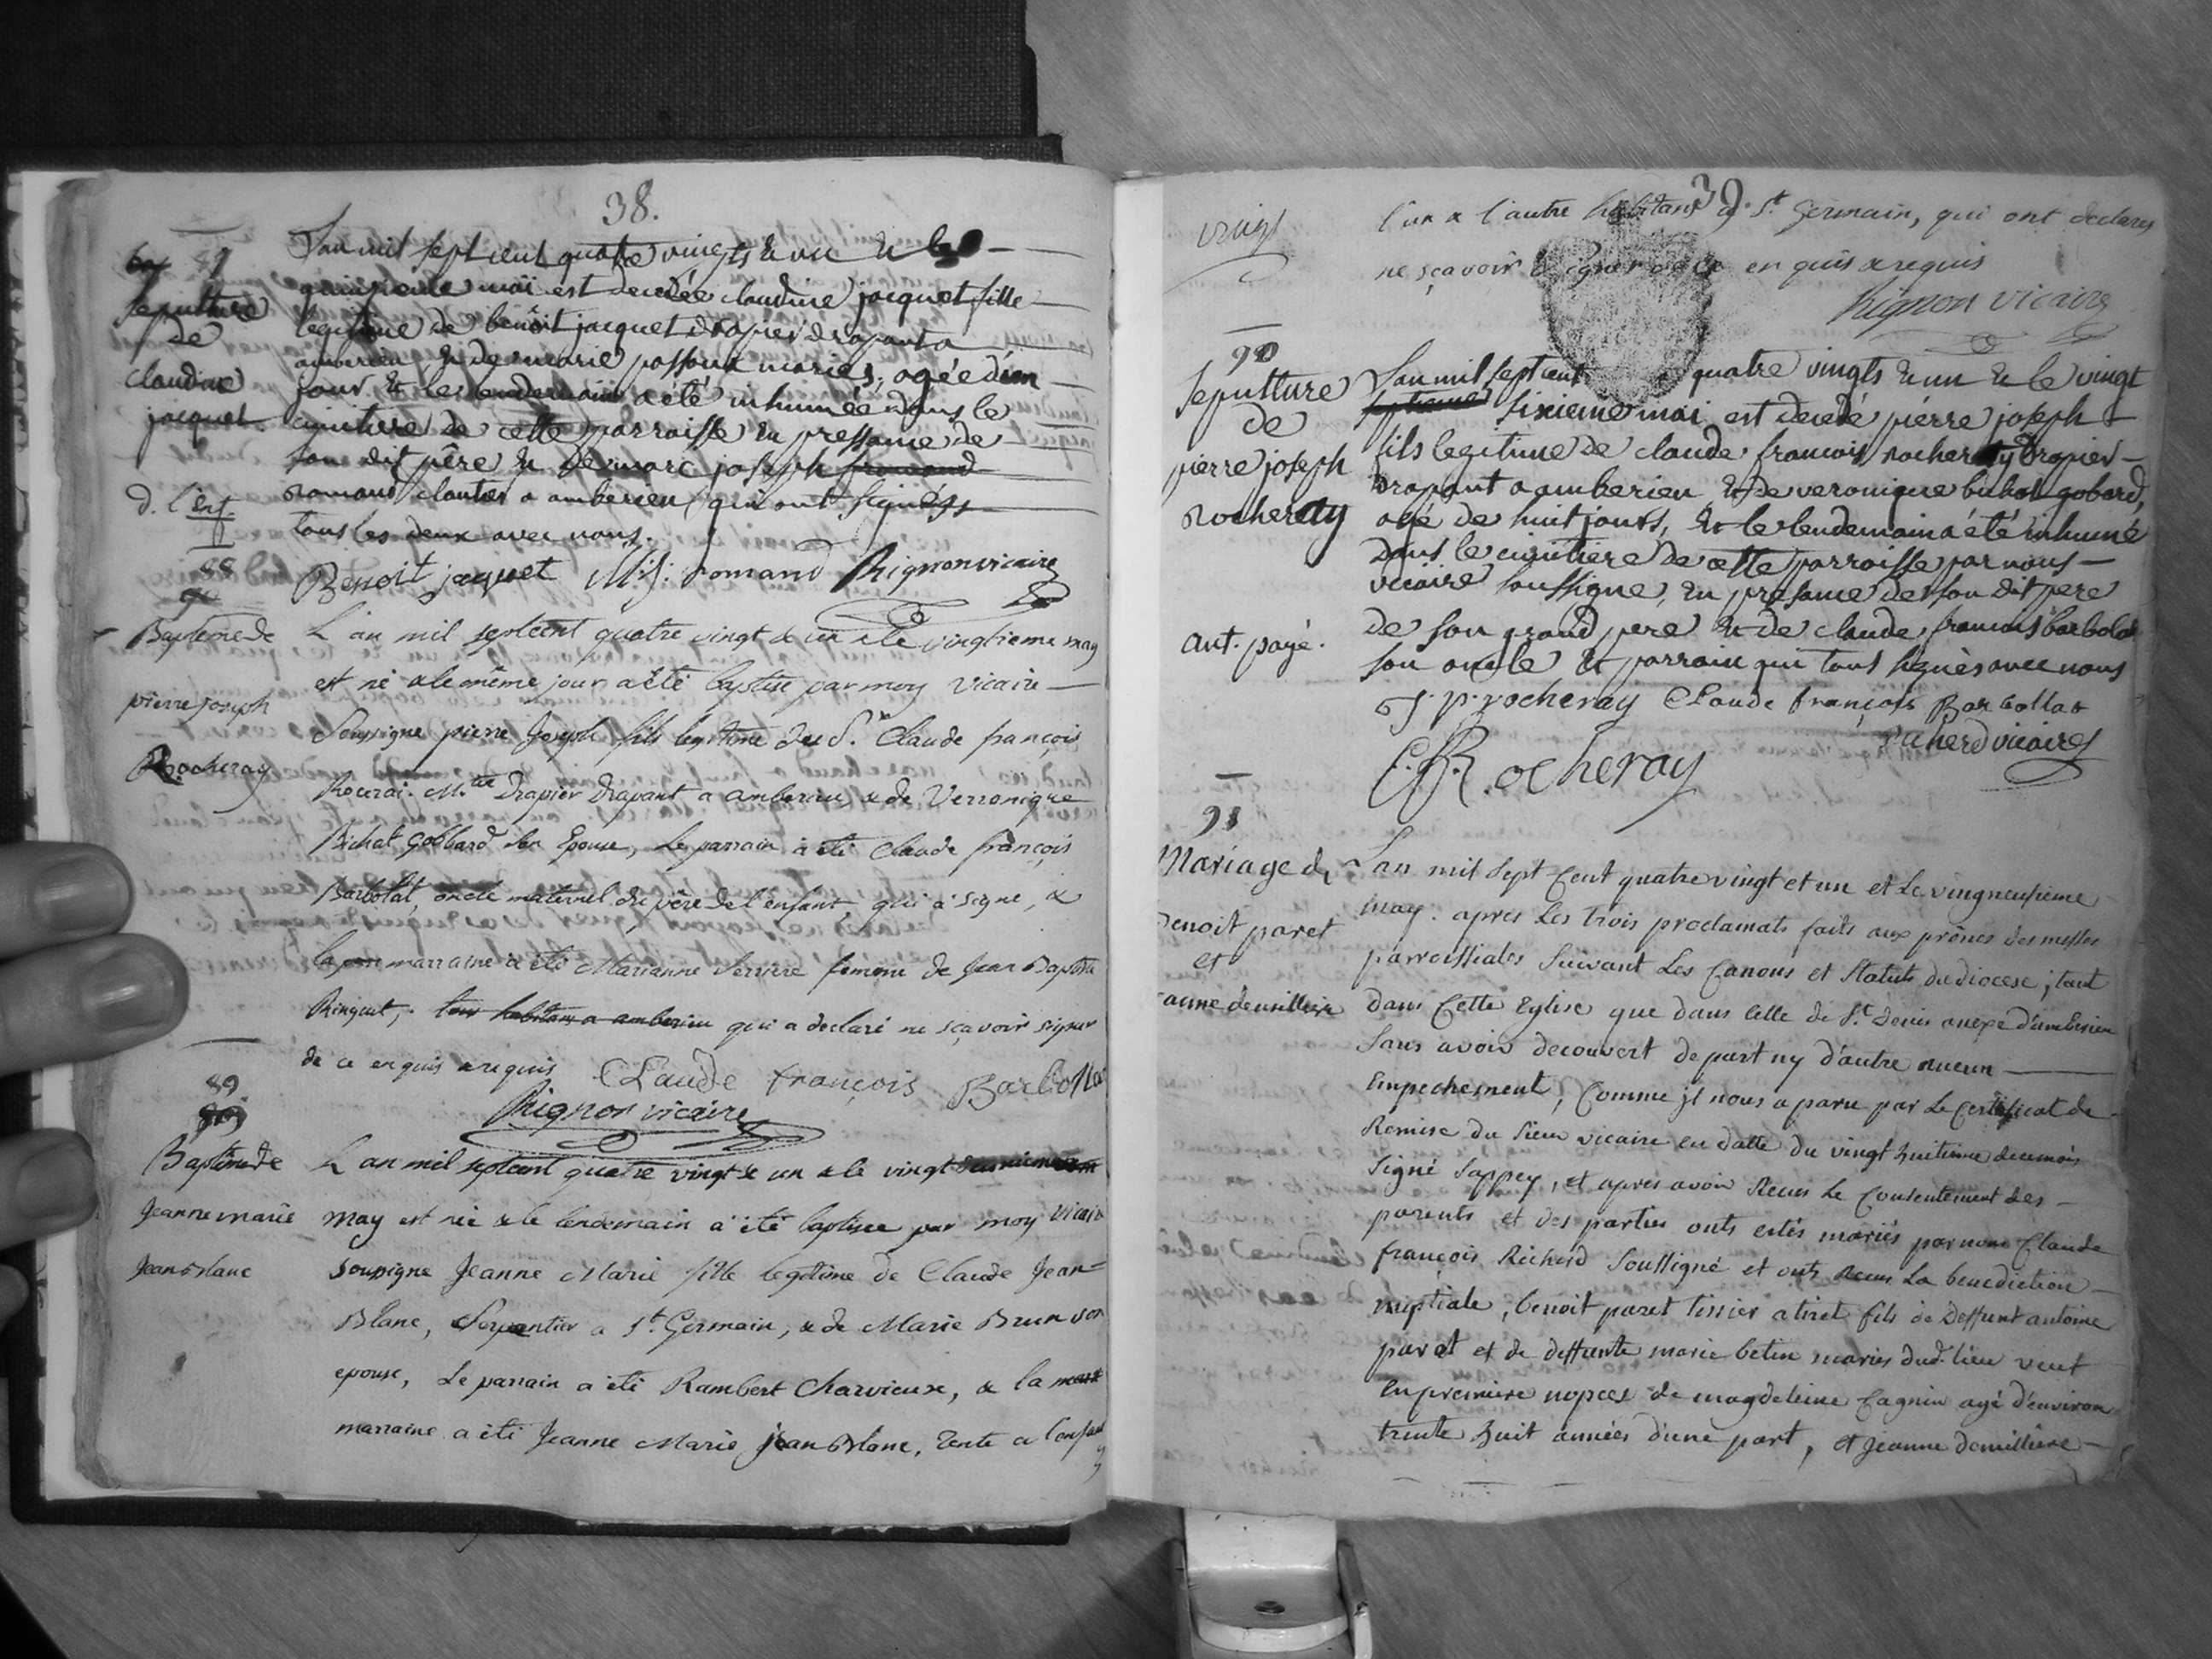 38.
87
Sepulture
de
claudine
jacquet.
d. l'enf.
L'an mil sept cent quatre vingts & un & le
quinzieme mai est decedée claudine jacquet fille
legitime de benoît jacquet drapier drapant a
amberieu & de marie passoux mariés, agée d'un
jour & le lendemain a été inhumée dans le
cimitiere de cette parroisse en pressance de
son dit père & de marc joseph
romand cloutier a amberieu qui ont signés
tous les deux avec nous.
Benoit jaquet M. j. romand Rignon vicaire
88
Baptême de
pierre joseph
Rocheray
L'an mil septcent quatre vingt & un & le vingtieme may
est né & le même jour a été baptisé par moy vicaire
Soussigne pierre Joseph fils legitime du Sr. Claude françois
Rocerai Mtre Drapier Drapant a amberieu & de Verronique
Bichat Gobbard son Epouse, Le parrain a été Claude françois
Barbolat, oncle maternel du père de l'enfant, qui a signé, &
la marraine a été Marianne Serriere femme de Jean Baptiste
Ringuet, tous habitans a amberieu qui a declaré ne sçavoir signer
de ce enquis & requis Claude françois Barbollat
Rignon vicaire
89
Baptême de
Jeanne marie
Jean blanc
L'an mil septcent quatre vingt & un & le vingt
may est née & le lendemain a été baptisee par moy vicaire
soussigne Jeanne Marie fille legitime de Claude Jean=
Blanc, Serpentier a St. Germain, & de Marie Brun son
epouse, Le parrain a été Rambert Charvieux, & la
marraine a été Jeanne Marie jean Blanc, tente a l'enfant
39.
l'un & l'autre habitans a St. Germain, qui ont declarés
ne sçavoir signer de ce enquis & requis
Rignon vicaire
90
Sepulture
de
pierre joseph
Rocheray
ant. payé.
L'an mil sept cent quatre vingts & un & le vingt
septieme sixieme mai est decedé pierre joseph
fils legitime de claude francois rocheray Drapier
Drapant a amberieu & de veronique bichat gobard,
agé de huit jours, & le lendemain a été inhumé
dans le cimitiere de cette parroisse par nous
vicaire soussigné, en presance de son dit pere
de son grand pere & de claude francois barbolat
son oncle & parrain qui tous signés avec nous
j. p. rocheray Claude françois Barbollat
Richerd vicaire
C. f. Rocheray
91
Mariage de
Benoit paret
et
L'an mil sept Cent quatre vingt et un et Le vingneufieme
may. apres Les trois proclamats faits aux prônes des messes
parroissiales suivant Les Canons et Statuts du diocese; tant
dans Cette Eglise que dans Celle de St. denis anexe d'amberieu
sans avoir decouvert de part ny d'autre aucun
Empechement, Comme jl nous a paru par Le Certificat de
Remise du sieur vicaire en datte du vingt huitieme du mois
signé Sappey, et apres avoir Receus Le Consentement des
parents et des parties onts estés mariés par nous Claude
françois Richerd soussigné et onts Receus La benediction
nuptiale, benoit paret tissier a tiret fils de deffunt antoine
paret et de deffunte marie betin mariés dud. lieu veuf
en premiere nopces de magdeleine Cagnin agé d'environ
trente huit années d'une part, et jeanne demilliere